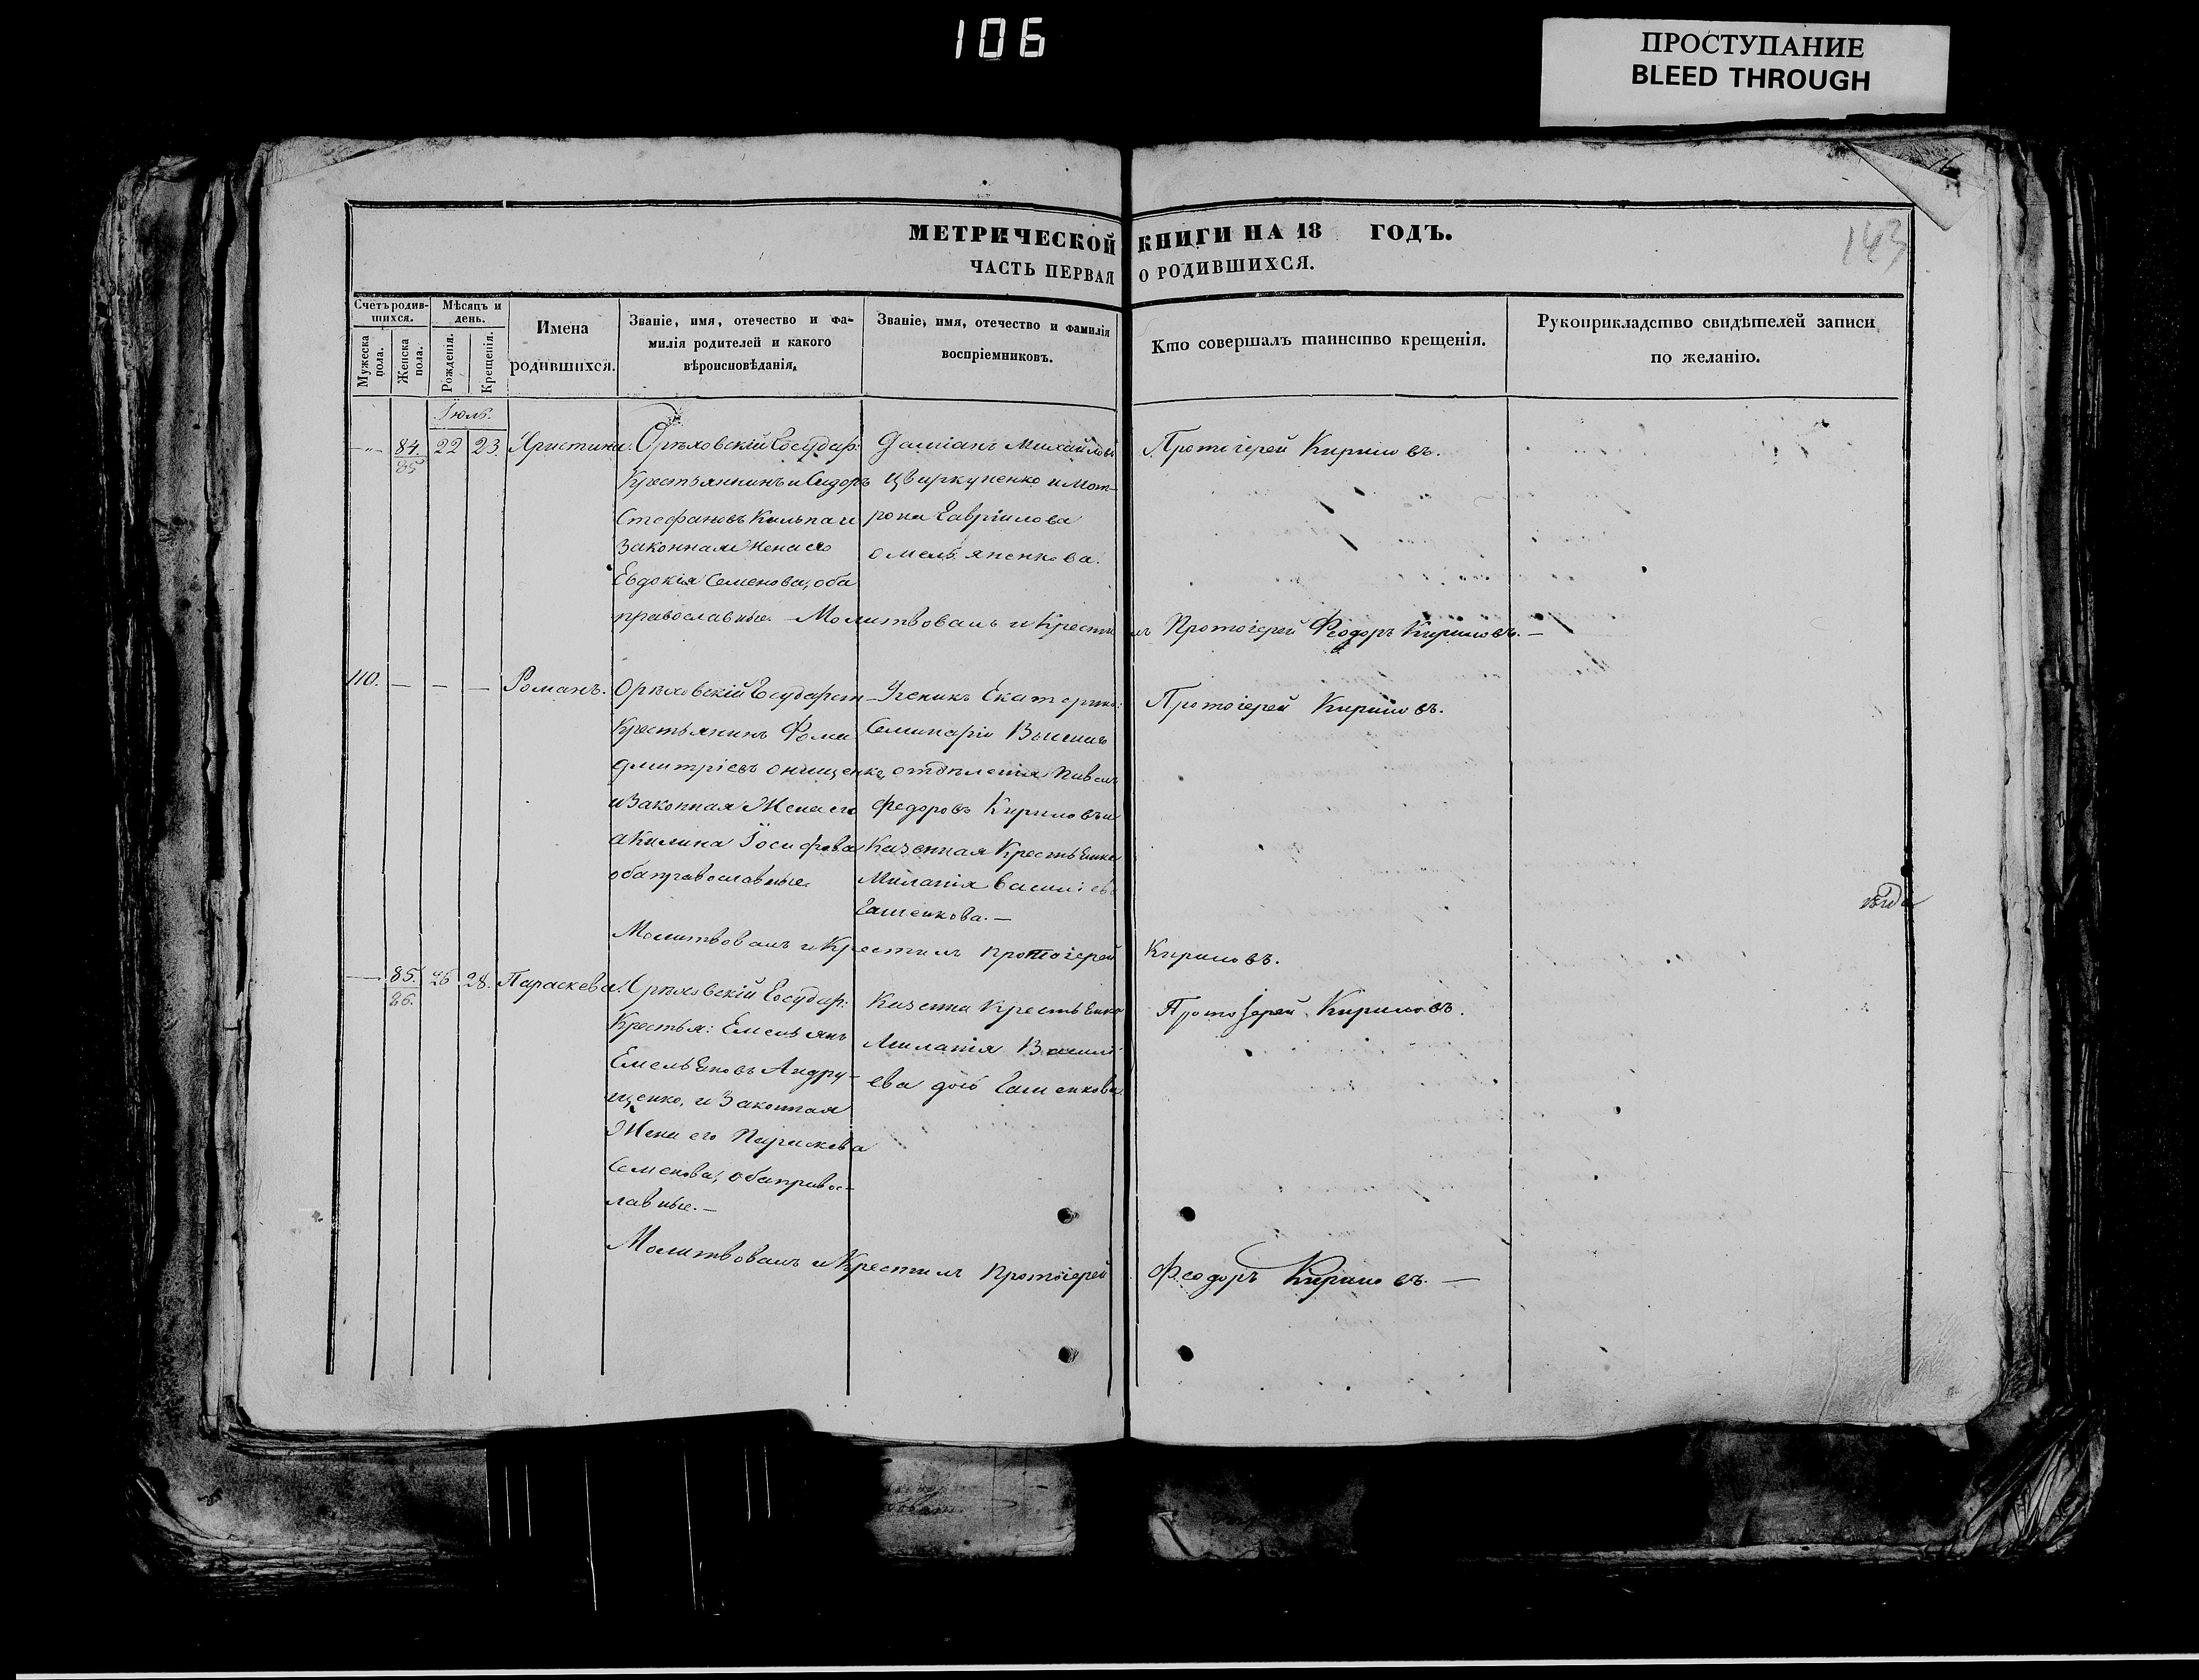 106
ПРОСТУПАНИЕ
BLEED THROUGH
МЕТРИЧЕСКОЙ КНИГИ НА 18 ГОДЪ.
ЧАСТЬ ПЕРВАЯ О РОДИВШИХСЯ.
143
Счетъ родив-
шихся.
Мужеска
пола.
Женска
пола.
Мѣсяцъ и
день.
Рожденія.
Крещенія.
Имена
родившихся.
Званіе, имя, отечество и фа-
милія родителей и какого
вѣроисновѣданія.
Званіе, имя, отечество и фамилія
воспріемниковъ.
Кто совершалъ таинство крещенія.
Рукоприкладство свидѣтелей записи
по желанію.
Іюль.
84.
85
22
23.
Христина.
Орѣховскій Государ:
Крестьянинъ Сидоръ
Стефановъ Кильпа и
Законная Жена его
Евдокія Семенова, оба
православные.
Даміанъ Михайловъ
Цвиркуненко и Мат-
рона Гавріилова
Омельяненкова.
Протоіерей Кириловъ.
Молитвовалъ и Крестилъ Протоіерей Феодоръ Кириловъ. —
110. — — —
Романъ.
Орѣховскій Государст
Крестьянинъ Фома
Дмитріевъ Онищенко,
и Законная Жена его
Акилина Іосифова
оба православные.
Ученикъ Екатерино:
Семинаріи Высшаго
отдѣленія Павелъ
Федоровъ Кириловъ и
Казенная Крестьянка
Миланія Василіева
Гашенкова. —
Протоіерей Кириловъ.
Молитвовалъ и Крестилъ Протоіерей Кириловъ.
85.
86.
26
28.
Параскева.
Орѣховскій Государ:
Крестья: Емельянъ
Емельяновъ Андру-
щенко, и Законная
Жена его Параскева
Семенова, оба правос-
лавные. —
Казенна Крестьянка
Миланія Василі
ева дочь Гашенкова.
Протоіерей Кириловъ.
Молитвовалъ и Крестилъ Протоіерей Феодоръ Кириловъ. —